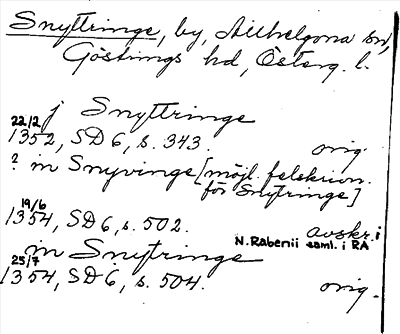 Snyttringe, by, Allhelgona sn,
Göstrings hd, Österg. l.
j Snyttringe
22/2
1352, SD 6, s. 343. orig.
? in Snyvinge [möjl. felskrivn.
för Snytringe]
19/6
1354, SD 6, s. 502. avskr. i
N. Rabenii saml. i RA
in Snytringe
25/7
1354, SD 6, s. 504. orig.